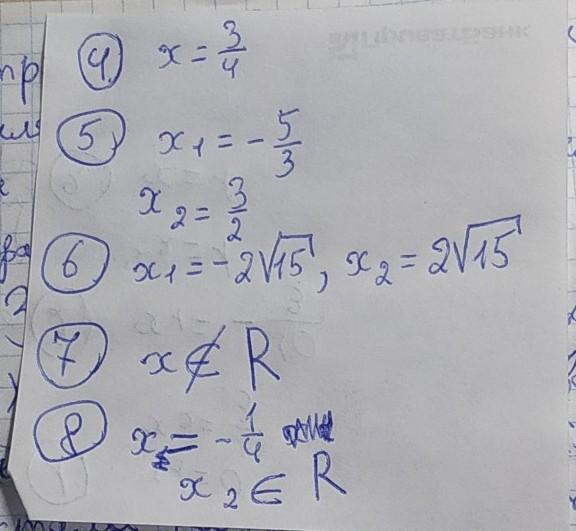 4 x = 3/4
5 x₁ = -5/3
x₂ = 3/2
6 x₁ = -2√15, x₂ = 2√15
7 x ∉ R
8 x = -1/4
x₂ ∈ R